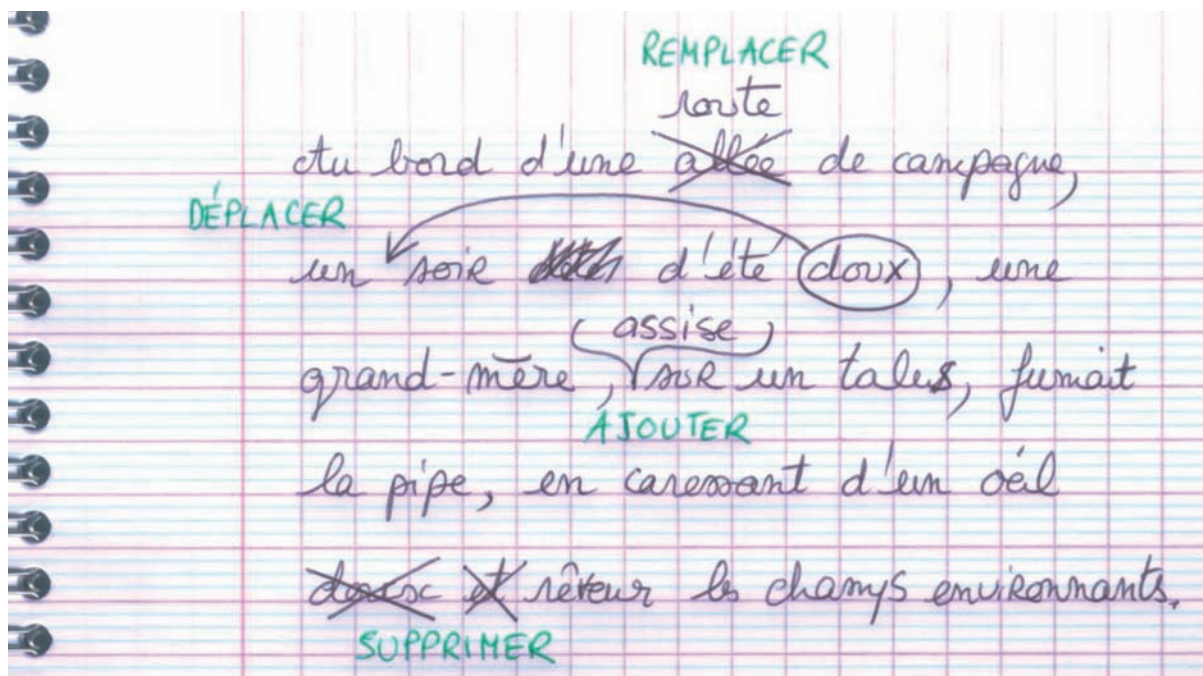 REMPLACER
route
Au bord d'une allée de campagne,
DÉPLACER
un soir d'été doux, une
assise
grand-mère, sur un talus, fumait
AJOUTER
la pipe, en caressant d'un oeil
doux et rêveur les champs environnants.
SUPPRIMER